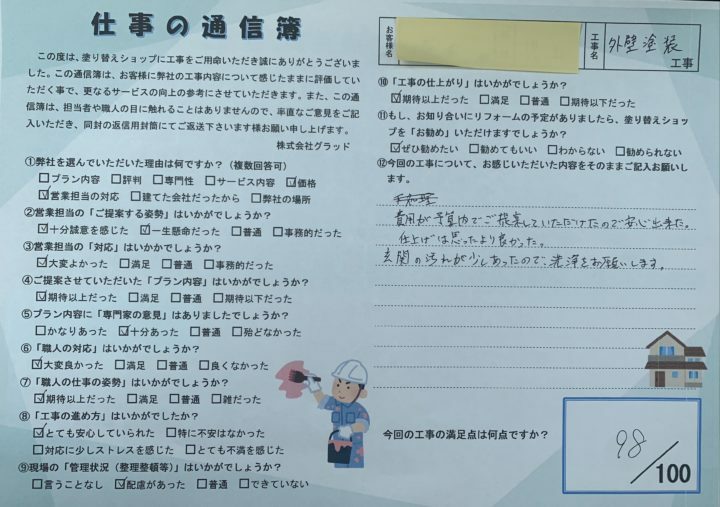 仕事の通信簿
この度は、塗り替えショップに工事をご用命いただき誠にありがとうございま
した。この通信簿は、お客様に弊社の工事内容について感じたままに評価してい
ただく事で、更なるサービスの向上の参考にさせていただきます。また、この通
信簿は、担当者や職人の目に触れることはありませんので、率直なご意見をご記
入いただき、同封の返信用封筒にてご返送下さいます様お願い申し上げます。
株式会社グラッド
①弊社を選んでいただいた理由は何ですか？（複数回答可）
□プラン内容 □評判 □専門性 □サービス内容 ☑価格
☑営業担当の対応 □建てた会社だったから □弊社の場所
②営業担当の「ご提案する姿勢」はいかがでしょうか？
☑十分誠意を感じた ☑一生懸命だった □普通 □事務的だった
③営業担当の「対応」はいかかでしょうか？
☑大変よかった □満足 □普通 □事務的だった
④ご提案させていただいた「プラン内容」はいかがでしょうか？
☑期待以上だった □満足 □普通 □期待以下だった
⑤プラン内容に「専門家の意見」はありましたでしょうか？
□かなりあった ☑十分あった □普通 □殆どなかった
⑥「職人の対応」はいかがでしょうか？
☑大変良かった □満足 □普通 □良くなかった
⑦「職人の仕事の姿勢」はいかがでしょうか？
☑期待以上だった □満足 □普通 □雑だった
⑧「工事の進め方」はいかがでしたか？
☑とても安心していられた □特に不安はなかった
□対応に少しストレスを感じた □とても不満を感じた
⑨現場の「管理状況（整理整頓等）」はいかがでしょうか？
□言うことなし ☑配慮があった □普通 □できていない
お客様名
工事名
外壁塗装
工事
⑩「工事の仕上がり」はいかがでしょうか？
☑期待以上だった □満足 □普通 □期待以下だった
⑪もし、お知り合いにリフォームの予定がありましたら、塗り替えショッ
プを「お勧め」いただけますでしょうか？
☑ぜひ勧めたい □勧めてもいい □わからない □勧められない
⑫今回の工事について、お感じいただいた内容をそのままご記入お願いし
ます。
費用が予算内でご提案していただけたので安心出来た。
仕上げは思ったより良かった。
玄関の汚れが少しあったので、洗浄をお願いします。
今回の工事の満足点は何点ですか？
98/100